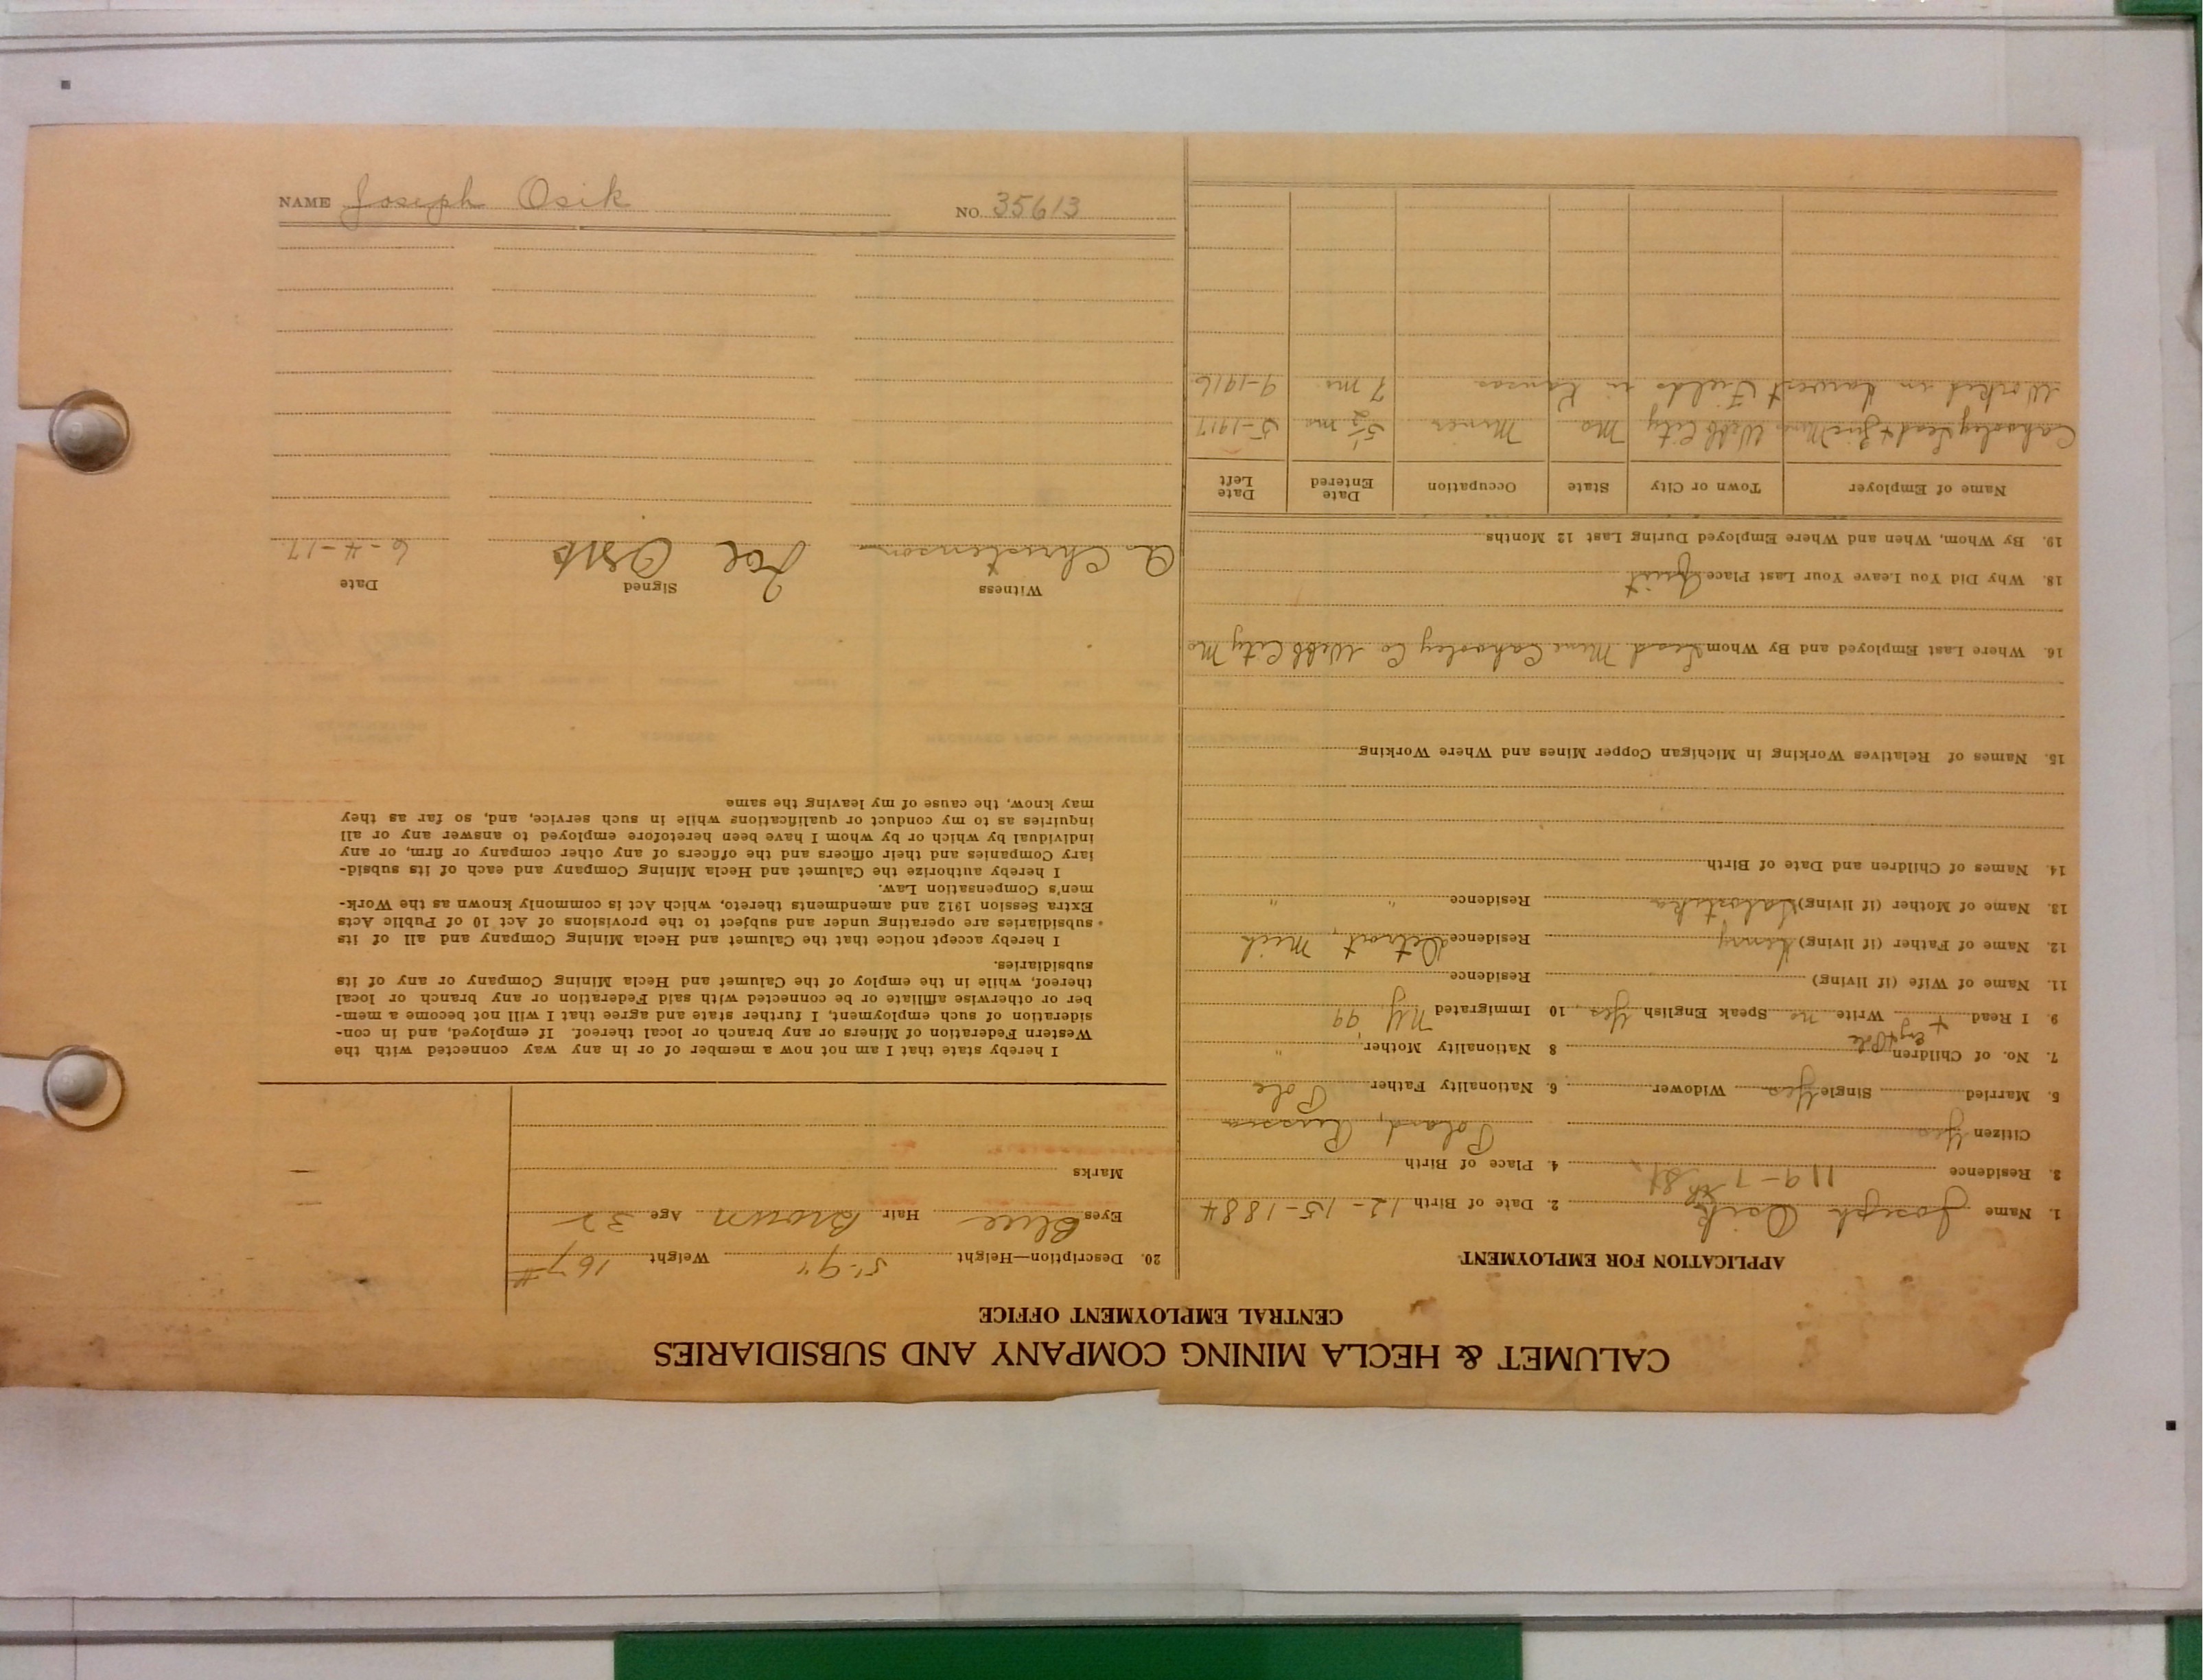 CALUMET & HECLA MINING COMPANY AND SUBSIDIARIES
CENTRAL EMPLOYMENT OFFICE
APPLICATION FOR EMPLOYMENT.
1. Name Joseph Osik 2. Date of Birth 12-15-1884
3. Residence 119-7th St 4. Place of Birth
Citizen Yes Poland, Russia
5. Married Single Yes Widower 6. Nationality Father Pole
7. No. of Children 8 Nationality Mother "
Eng & Pole
9. I Read + Write no Speak English Yes 10 Immigrated N.Y. '99
11. Name of Wife (if living) Residence
12. Name of Father (if living) Residence Detroit, Mich
13. Name of Mother (if living) Residence " "
14. Names of Children and Date of Birth
15. Names of Relatives Working in Michigan Copper Mines and Where Working
16. Where Last Employed and By Whom Lead Mine Co. Webb City Mo
18. Why Did You Leave Your Last Place Quit
19. By Whom, When and Where Employed During Last 12 Months
Name of Employer Town or City State Occupation Date Entered Date Left
Lead & Zinc Mine Webb City Mo Miner 5½ mo 5-1917
Worked in harvest Fields in Kansas 7 mo 9-1916
20. Description—Height 5'-9" Weight 167#
Eyes Blue Hair Brown Age 32
Marks
I hereby state that I am not now a member of or in any way connected with the
Western Federation of Miners or any branch or local thereof. If employed, and in con-
sideration of such employment, I further state and agree that I will not become a mem-
ber or otherwise affiliate or be connected with said Federation or any branch or local
thereof, while in the employ of the Calumet and Hecla Mining Company or any of its
subsidiaries.
I hereby accept notice that the Calumet and Hecla Mining Company and all of its
subsidiaries are operating under and subject to the provisions of Act 10 of Public Acts
Extra Session 1912 and amendments thereto, which Act is commonly known as the Work-
men's Compensation Law.
I hereby authorize the Calumet and Hecla Mining Company and each of its subsid-
iary Companies and their officers and the officers of any other company or firm, or any
individual by which or by whom I have been heretofore employed to answer any or all
inquiries as to my conduct or qualifications while in such service, and, so far as they
may know, the cause of my leaving the same
Witness Signed Date
A. Christenson Joe 6-4-17.
NAME Joseph Osik NO. 35613